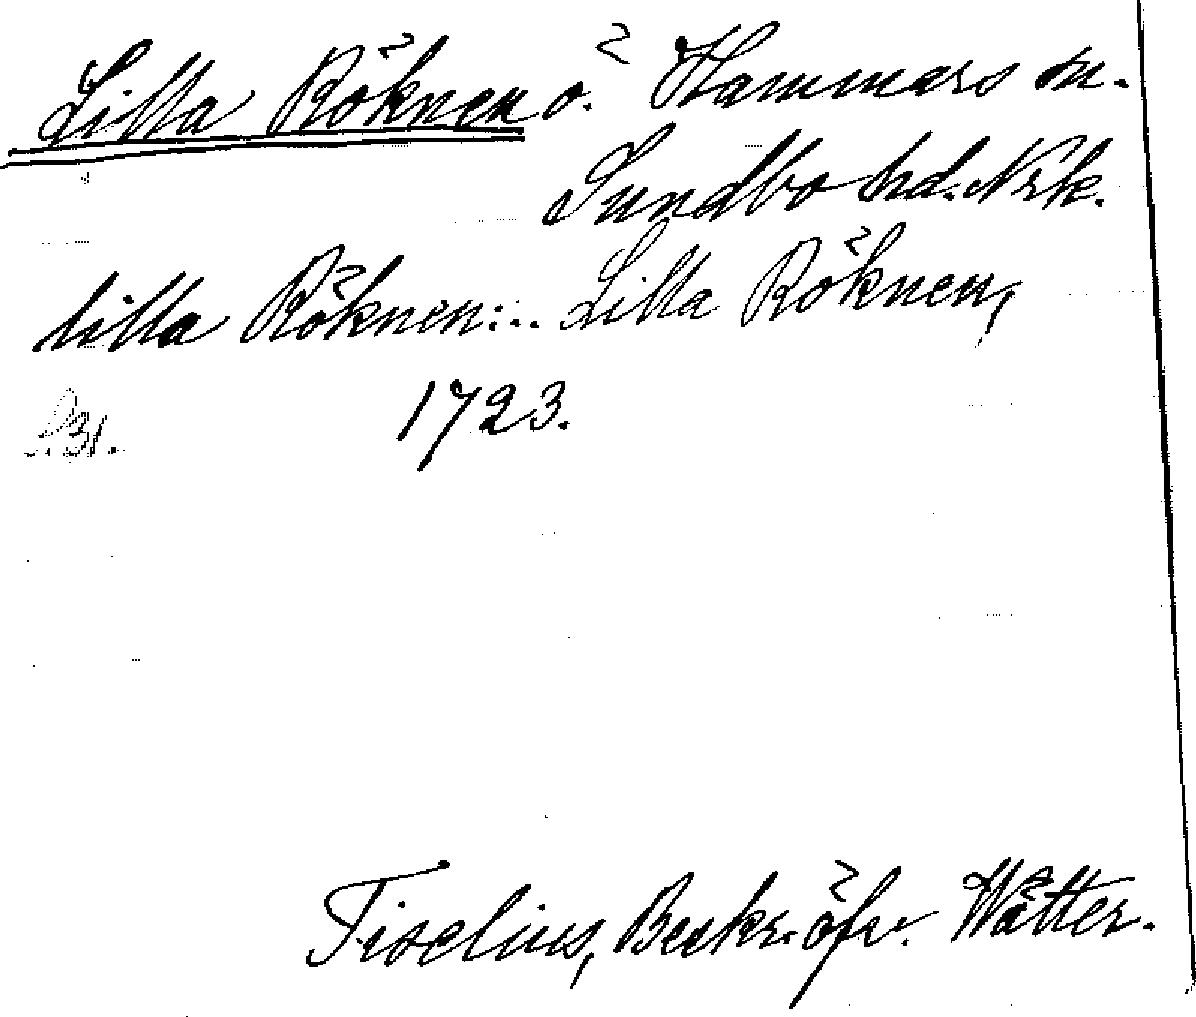 Lilla Röknen ö. Hammars sn.
Sundbo hd. Nrk.
lilla Röknen:.. Lilla Röknen,
s. 31. 1723.
Tiselius, Beskr. öfv. Wätter.